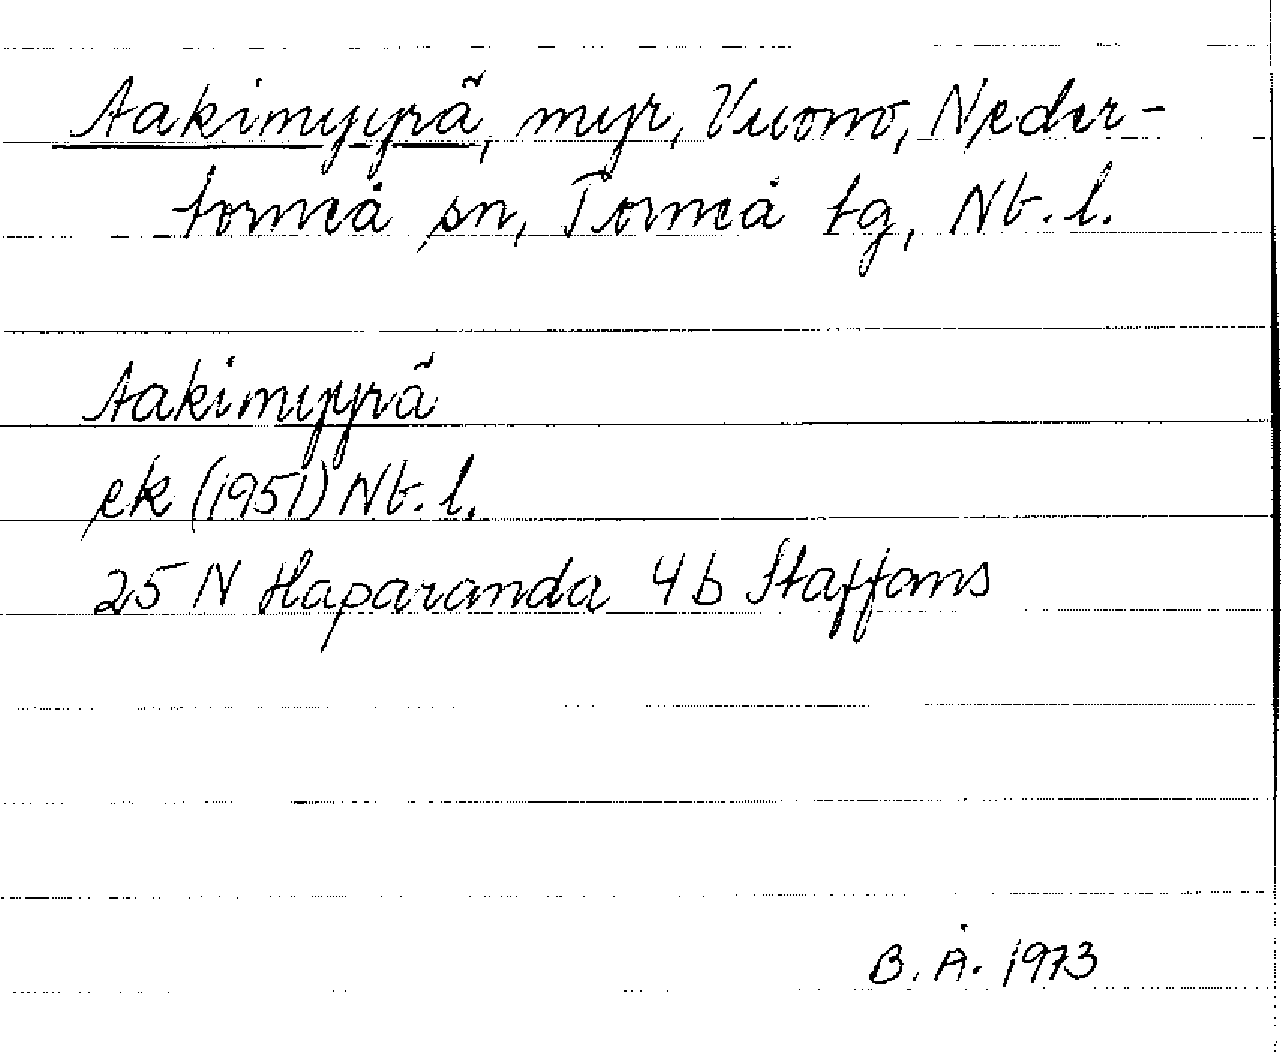 Aakimyyrä, myr, Vuono, Neder-
torneå sn, Torneå tg, Nb. l.
Aakimyyrä
ek (1951) Nb. l.
25 N Haparanda 4 b Staffans
B. Å. 1973